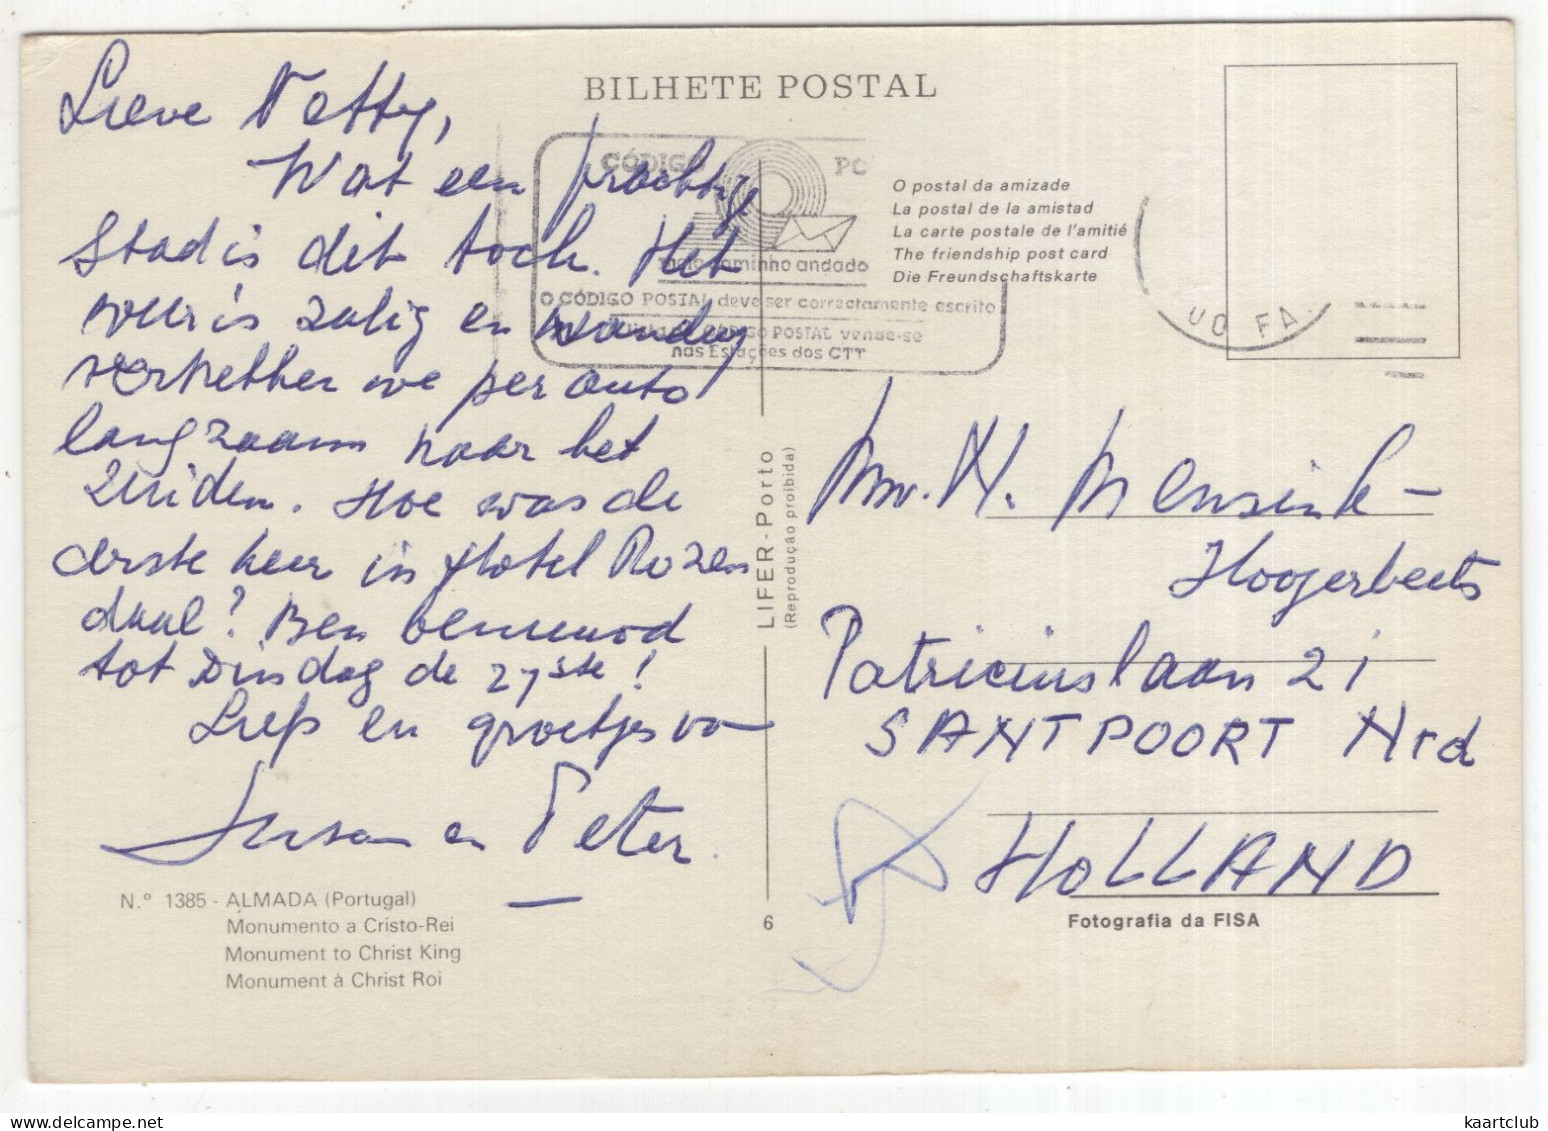 Lieve Netty,
Wat een prachtig
stad is dit toch. Het
weer is zalig en vandaag
vertrekken we per auto
langzaam naar het
Zuiden. Hoe was de
eerste keer in Hotel Rozen
daal? Ben benieuwd
tot Dinsdag de 27ste!
Liefs en groetjes van
Susan en Peter.
N.º 1385 - ALMADA (Portugal)
Monumento a Cristo-Rei
Monument to Christ King
Monument à Christ Roi
BILHETE POSTAL
CÓDIGO PO
meio caminho andado
O CÓDIGO POSTAL deve ser correctamente escrito
CÓDIGO POSTAL vende-se
nas Estações dos CTT
O postal da amizade
La postal de la amistad
La carte postale de l'amitié
The friendship post card
Die Freundschaftskarte
LIFER - Porto
(Reprodução proibida)
6
Mw. N. Mensink -
Hoogerbeets
Patriciuslaan 21
SANTPOORT Nrd
HOLLAND
Fotografia da FISA
kaartclub